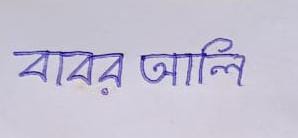 বাবর আলি